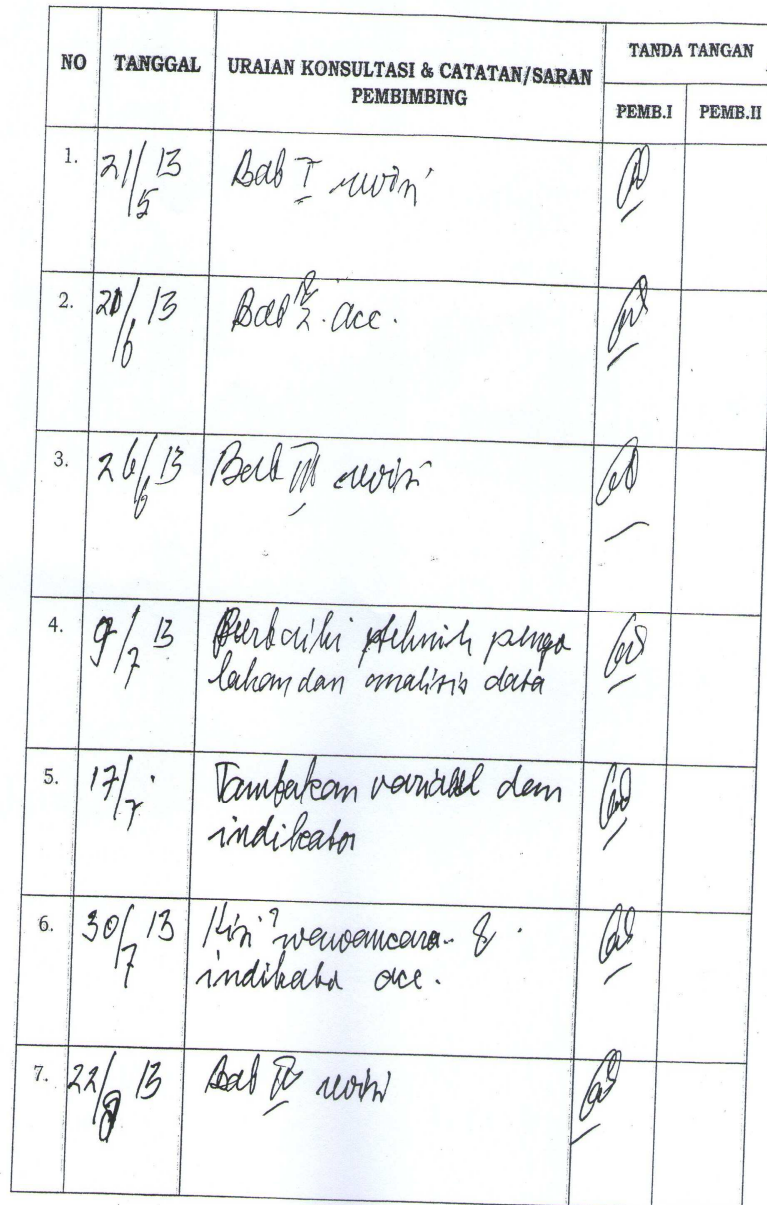 NO TANGGAL URAIAN KONSULTASI & CATATAN/SARAN PEMBIMBING TANDA TANGAN
PEMB.I PEMB.II
1. 21/5 13 Bab I revisi
2. 6 13 Bab acc.
3. 26/6 13 Bab III revisi
4. 9/7 13 Perbaiki tehnik penga
lahan dan analisis data
5. 17/7 Tambakan variabel dan
indikator
6. 30/7 13 Kisi² wawancara &
indikator acc.
7. 22/8 13 Bab IV revisi